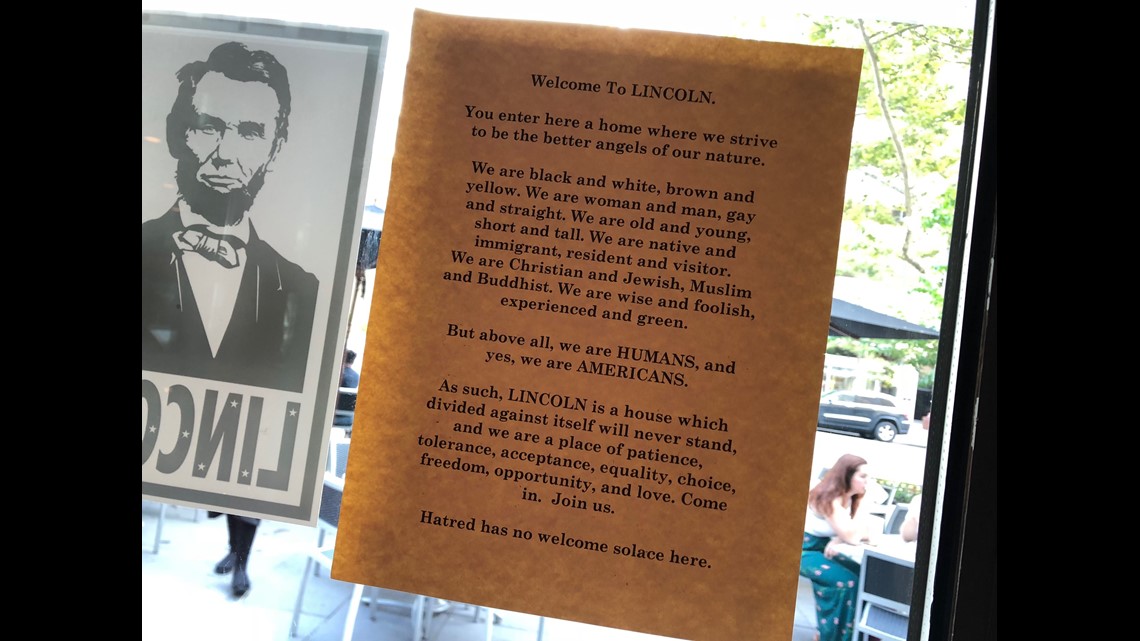 Welcome To LINCOLN.
You enter here a home where we strive
to be the better angels of our nature.
We are black and white, brown and
yellow. We are woman and man, gay
and straight. We are old and young,
short and tall. We are native and
immigrant, resident and visitor.
We are Christian and Jewish, Muslim
and Buddhist. We are wise and foolish,
experienced and green.
But above all, we are HUMANS, and
yes, we are AMERICANS.
As such, LINCOLN is a house which
divided against itself will never stand,
and we are a place of patience,
tolerance, acceptance, equality, choice,
freedom, opportunity, and love. Come
in. Join us.
Hatred has no welcome solace here.